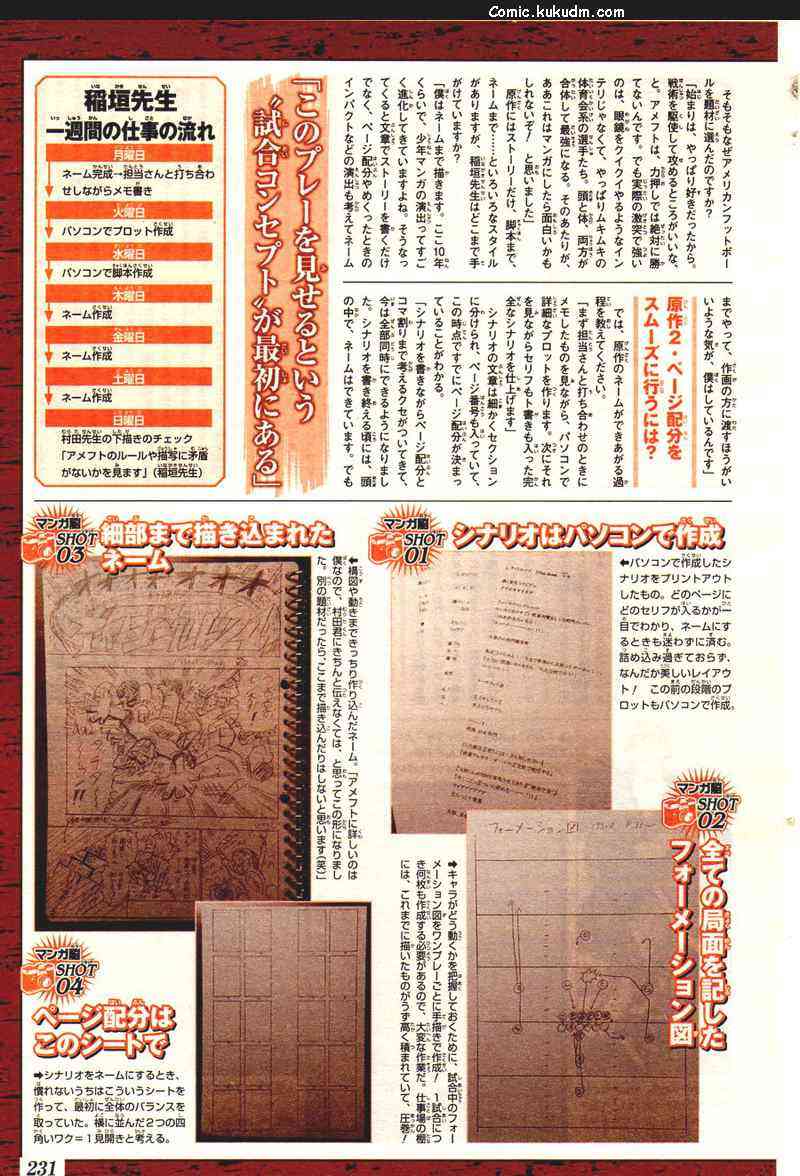 Comic.kukudm.com
そもそもなぜアメリカンフットボー
ルを題材に選んだのですか？
「始まりは、やっぱり好きだったから。
戦術を駆使して攻めるところがいいな、
と。アメフトは、力押しでは絶対に勝
てないんです。でも実際の激突で強い
のは、眼鏡をクイクイやるようなイン
テリじゃなくて、やっぱりムキムキの
体育会系の選手たち。頭と体、両方が
合体して最強になる。そのあたりが、
ああこれはマンガにしたら面白いかも
しれないぞ！と思いました」
原作にはストーリーだけ、脚本まで、
ネームまで……といろいろなスタイル
がありますが、稲垣先生はどこまで手
がけていますか？
「僕はネームまで描きます。ここ10年
くらいで、少年マンガの演出ってすご
く進化してきていますよね。そうなっ
てくると文章でストーリーを書くだけ
でなく、ページ配分やめくったときの
インパクトなどの演出も考えてネーム
までやって、作画の方に渡すほうがい
いような気が、僕はしているんです」
原作2・ページ配分を
スムーズに行うには？
では、原作のネームができあがる過
程を教えてください。
「まず担当さんと打ち合わせのときに
メモしたものを見ながら、パソコンで
詳細なプロットを作ります。次にそれ
を見ながらセリフもト書きも入った完
全なシナリオを仕上げます」
シナリオの文章は細かくセクション
に分けられ、ページ番号も入っていて、
この時点ですでにページ配分が決まっ
ていることがわかる。
「シナリオを書きながらページ配分と
コマ割りまで考えるクセがついてきて、
今は全部同時にできるようになりまし
た。シナリオを書き終える頃には、頭
の中で、ネームはできています。でも
「このプレーを見せるという
“試合コンセプト”が最初にある」
稲垣先生
一週間の仕事の流れ
月曜日
ネーム完成→担当さんと打ち合わ
せしながらメモ書き
火曜日
パソコンでプロット作成
水曜日
パソコンで脚本作成
木曜日
ネーム作成
金曜日
ネーム作成
土曜日
ネーム作成
日曜日
村田先生の下描きのチェック
「アメフトのルールや描写に矛盾
がないかを見ます」（稲垣先生）
マンガ脳
SHOT
01
シナリオはパソコンで作成
←パソコンで作成したシ
ナリオをプリントアウト
したもの。どのページに
どのセリフが入るかが一
目でわかり、ネームにす
るときも迷わずに済む。
詰め込み過ぎておらず、
なんだか美しいレイアウ
ト！　この前の段階のプ
ロットもパソコンで作成。
マンガ脳
SHOT
02
全ての局面を記した
フォーメーション図
フォーメーション図
→キャラがどう動くかを把握しておくために、試合中のフォー
メーション図をワンプレーごとに手描きで作成！　1試合につ
き何枚も作成する必要があるので、大変な作業だ。仕事場の棚
には、これまでに描いたものがうず高く積まれていて、圧巻！
マンガ脳
SHOT
03
細部まで描き込まれた
ネーム
←構図や動きまできっちり作り込んだネーム。「アメフトに詳しいのは
僕なので、村田君にきちんと伝えなくては、と思ってこの形になりまし
た。別の題材だったら、ここまで描き込んだりはしないと思います（笑）」
マンガ脳
SHOT
04
ページ配分は
このシートで
→シナリオをネームにするとき、
慣れないうちはこういうシートを
作って、最初に全体のバランスを
取っていた。横に並んだ2つの四
角いワク＝1見開きと考える。
231